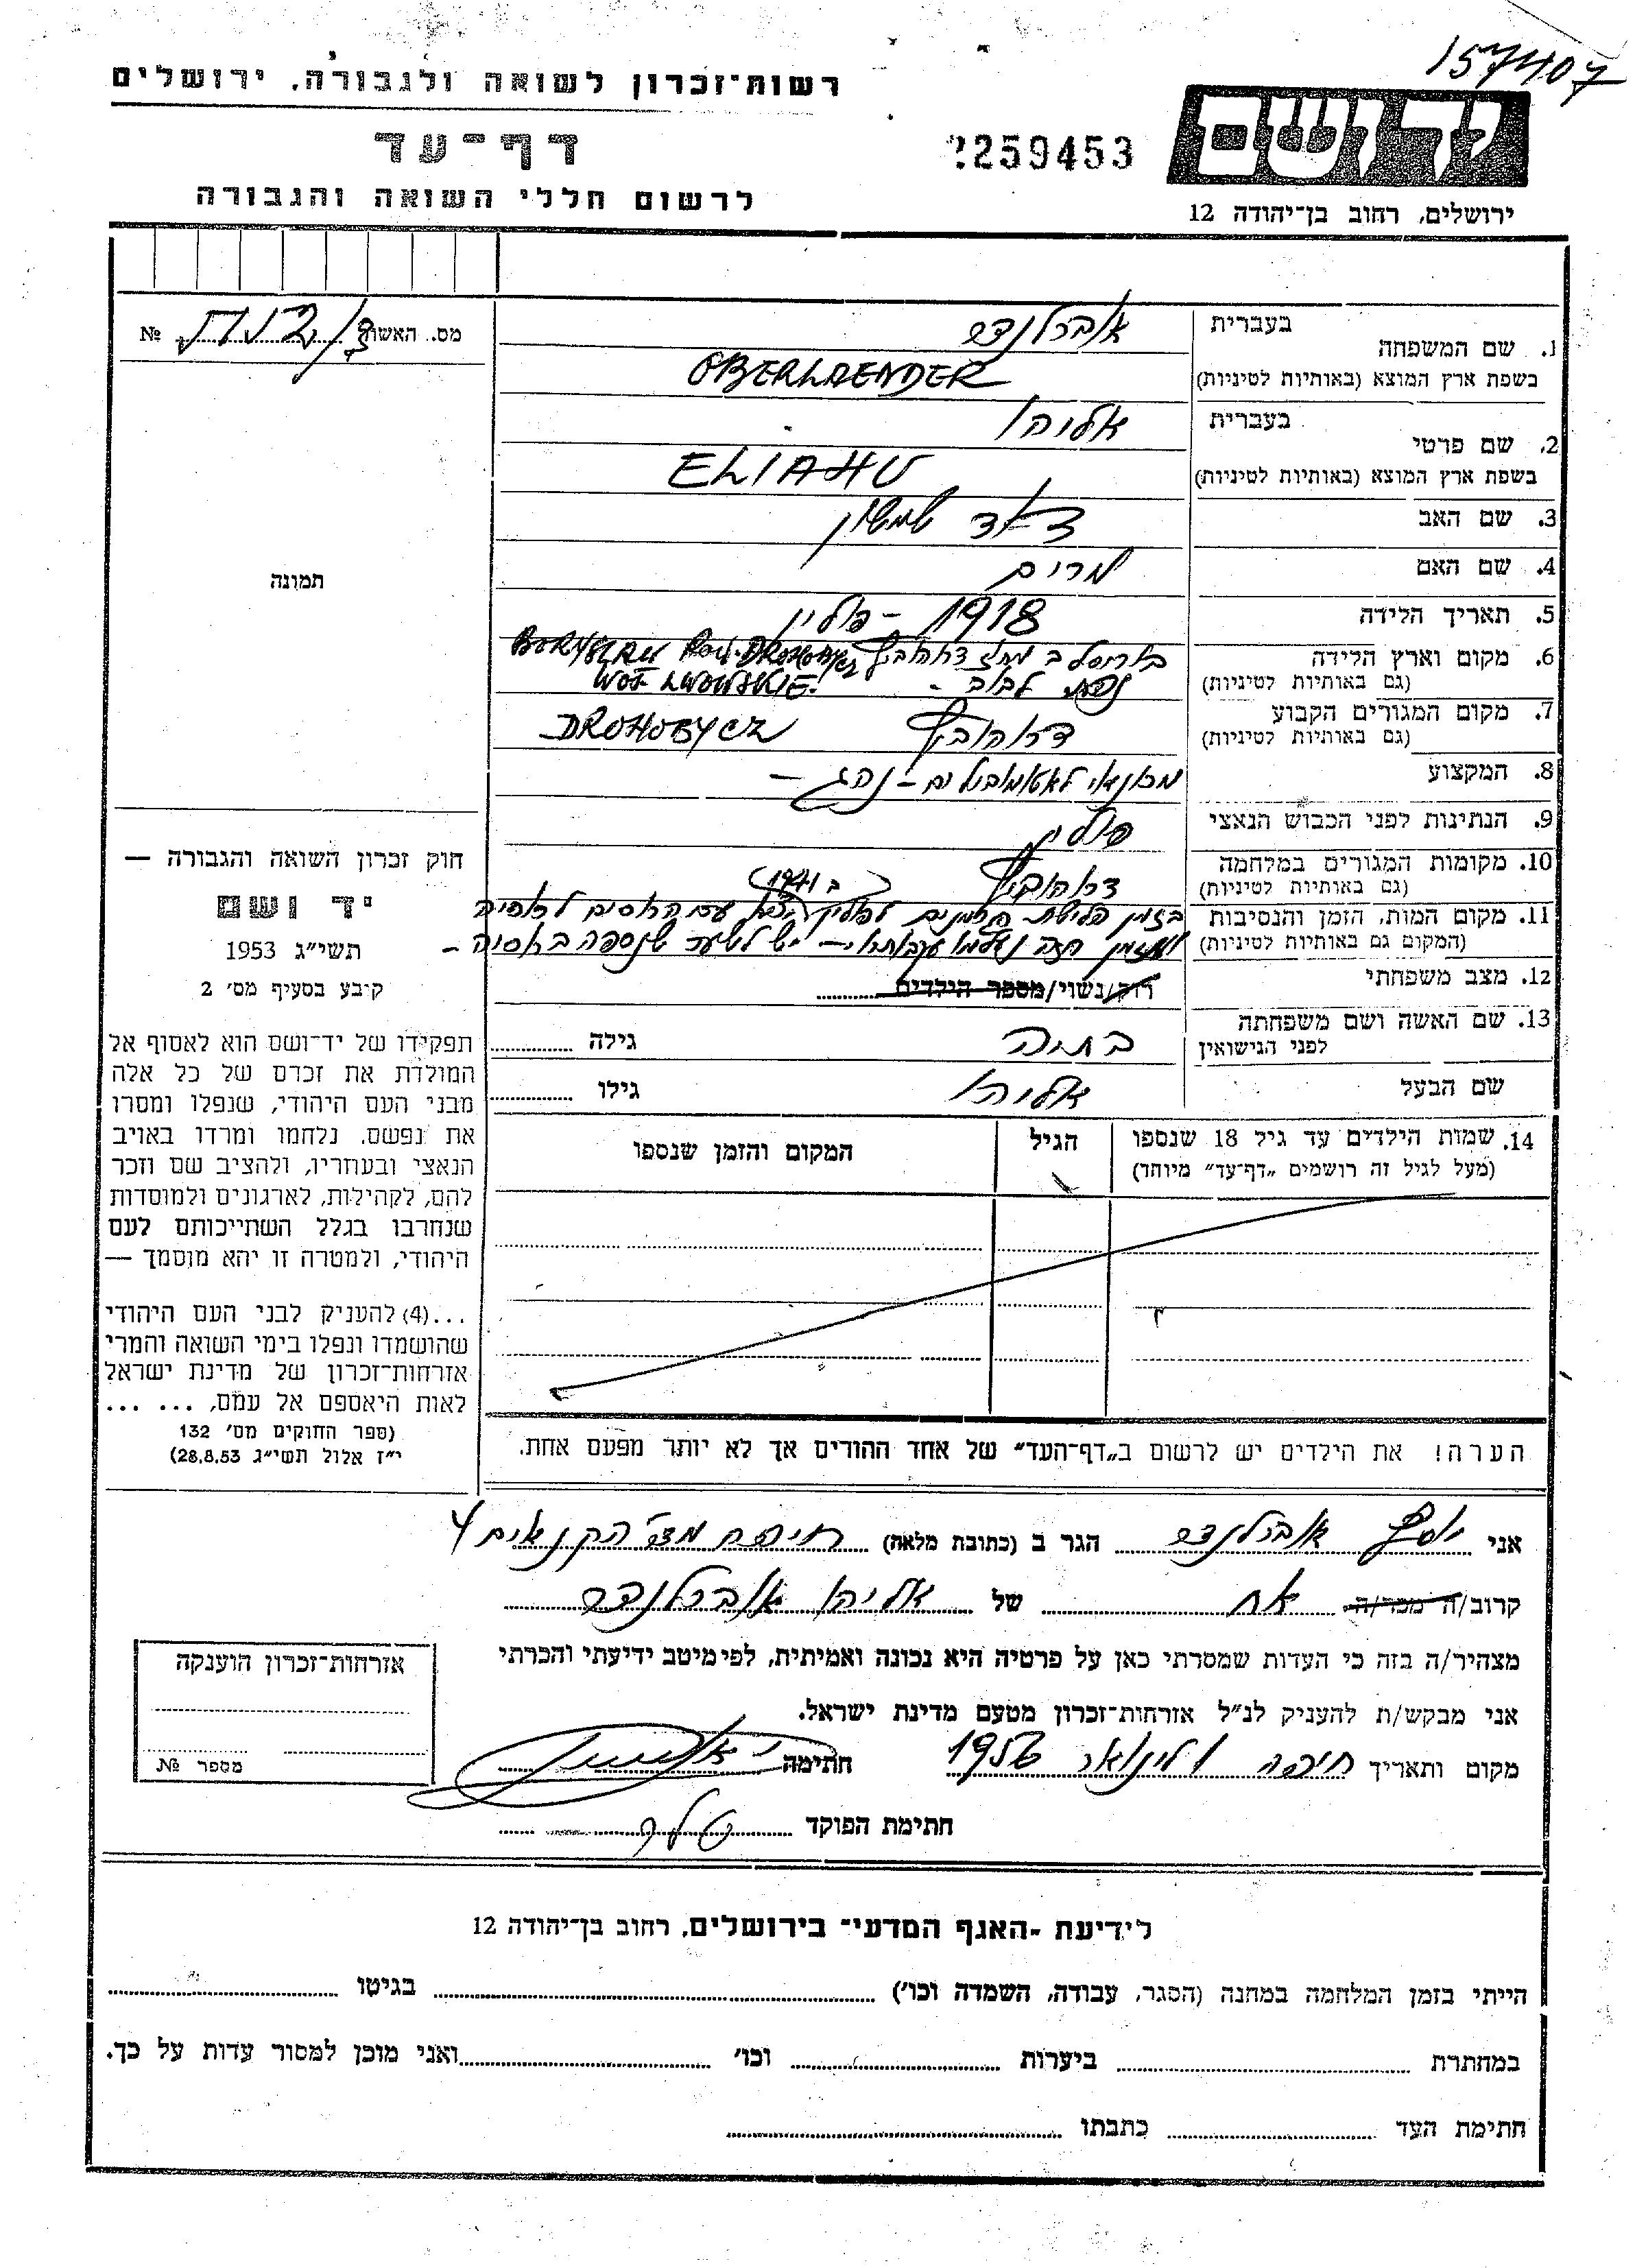 157407
רשות־זכרון לשואה ולגבורה, ירושלים
דף־עד
לרשום חללי השואה והגבורה
259453
יד ושם
ירושלים, רחוב בן־יהודה 12
מס. האשור № 
1. שם המשפחה
בעברית אוברלנדר
בשפת ארץ המוצא (באותיות לטיניות) OBERLAENDER
2. שם פרטי
בעברית אליהו
בשפת ארץ המוצא (באותיות לטיניות) ELIAHU
3. שם האב דוד שמשון
4. שם האם מרים
5. תאריך הלידה 1918 – פולין
6. מקום וארץ הלידה בוריסלב מחוז דרוהוביץ BORYSLAU POW. DROHOBYCZ
(גם באותיות לטיניות) לבוב – WOJ. LWOWSKIE.
7. מקום המגורים הקבוע דרוהוביץ DROHOBYCZ
(גם באותיות לטיניות)
8. המקצוע מכונאי לאוטומובילים – נהג –
9. הנתינות לפני הכבוש הנאצי פולין
10. מקומות המגורים במלחמה דרוהוביץ
(גם באותיות לטיניות)
11. מקום המות, הזמן והנסיבות בזמן פלישת הגרמנים לפולין (ב 1941) עם הרוסים לרוסיה
(המקום גם באותיות לטיניות) ומזמן הזה נעלמו עקבותיו – יש לשער שנספה ברוסיה –
12. מצב משפחתי רווק/נשוי/מספר הילדים
13. שם האשה ושם משפחתה
לפני הנישואין בתיה גילה
שם הבעל אליהו גילו
14. שמות הילדים עד גיל 18 שנספו הגיל המקום והזמן שנספו
(מעל לגיל זה רושמים „דף־עד" מיוחד)
הערה! את הילדים יש לרשום ב„דף־העד" של אחד ההורים אך לא יותר מפעם אחת.
תמונה
חוק זכרון השואה והגבורה —
יד ושם
תשי״ג 1953
קיבע בסעיף מס׳ 2
תפקידו של יד־ושם הוא לאסוף אל
המולדת את זכרם של כל אלה
מבני העם היהודי, שנפלו ומסרו
את נפשם, נלחמו ומרדו באויב
הנאצי ובעוזריו, ולהציב שם וזכר
להם, לקהילות, לארגונים ולמוסדות
שנחרבו בגלל השתייכותם לעם
היהודי, ולמטרה זו יהא מוסמך —
...(4) להעניק לבני העם היהודי
שהושמדו ונפלו בימי השואה והמרי
אזרחות־זכרון של מדינת ישראל
לאות היאספם אל עמם, ... ...
(ספר החוקים מס׳ 132
י״ז אלול תשי״ג 28.8.53)
אני יוסף אוברלנדר הגר ב (כתובת מלאה) חיפה מצ׳ הקנאים 4
קרוב/ה מכר/ה אח של אליהו אוברלנדר
מצהיר/ה בזה כי העדות שמסרתי כאן על פרטיה היא נכונה ואמיתית, לפי מיטב ידיעתי והכרתי
אני מבקש/ת להעניק לנ״ל אזרחות־זכרון מטעם מדינת ישראל.
מקום ותאריך חיפה 1 לינואר 1956 חתימה
חתימת הפוקד
אזרחות־זכרון הוענקה
מספר №
לידיעת „האגף המדעי" בירושלים, רחוב בן־יהודה 12
הייתי בזמן המלחמה במחנה (הסגר, עבודה, השמדה וכו׳) בגיטו
במחתרת ביערות וכו׳ ואני מוכן למסור עדות על כך.
חתימת העד כתבתו